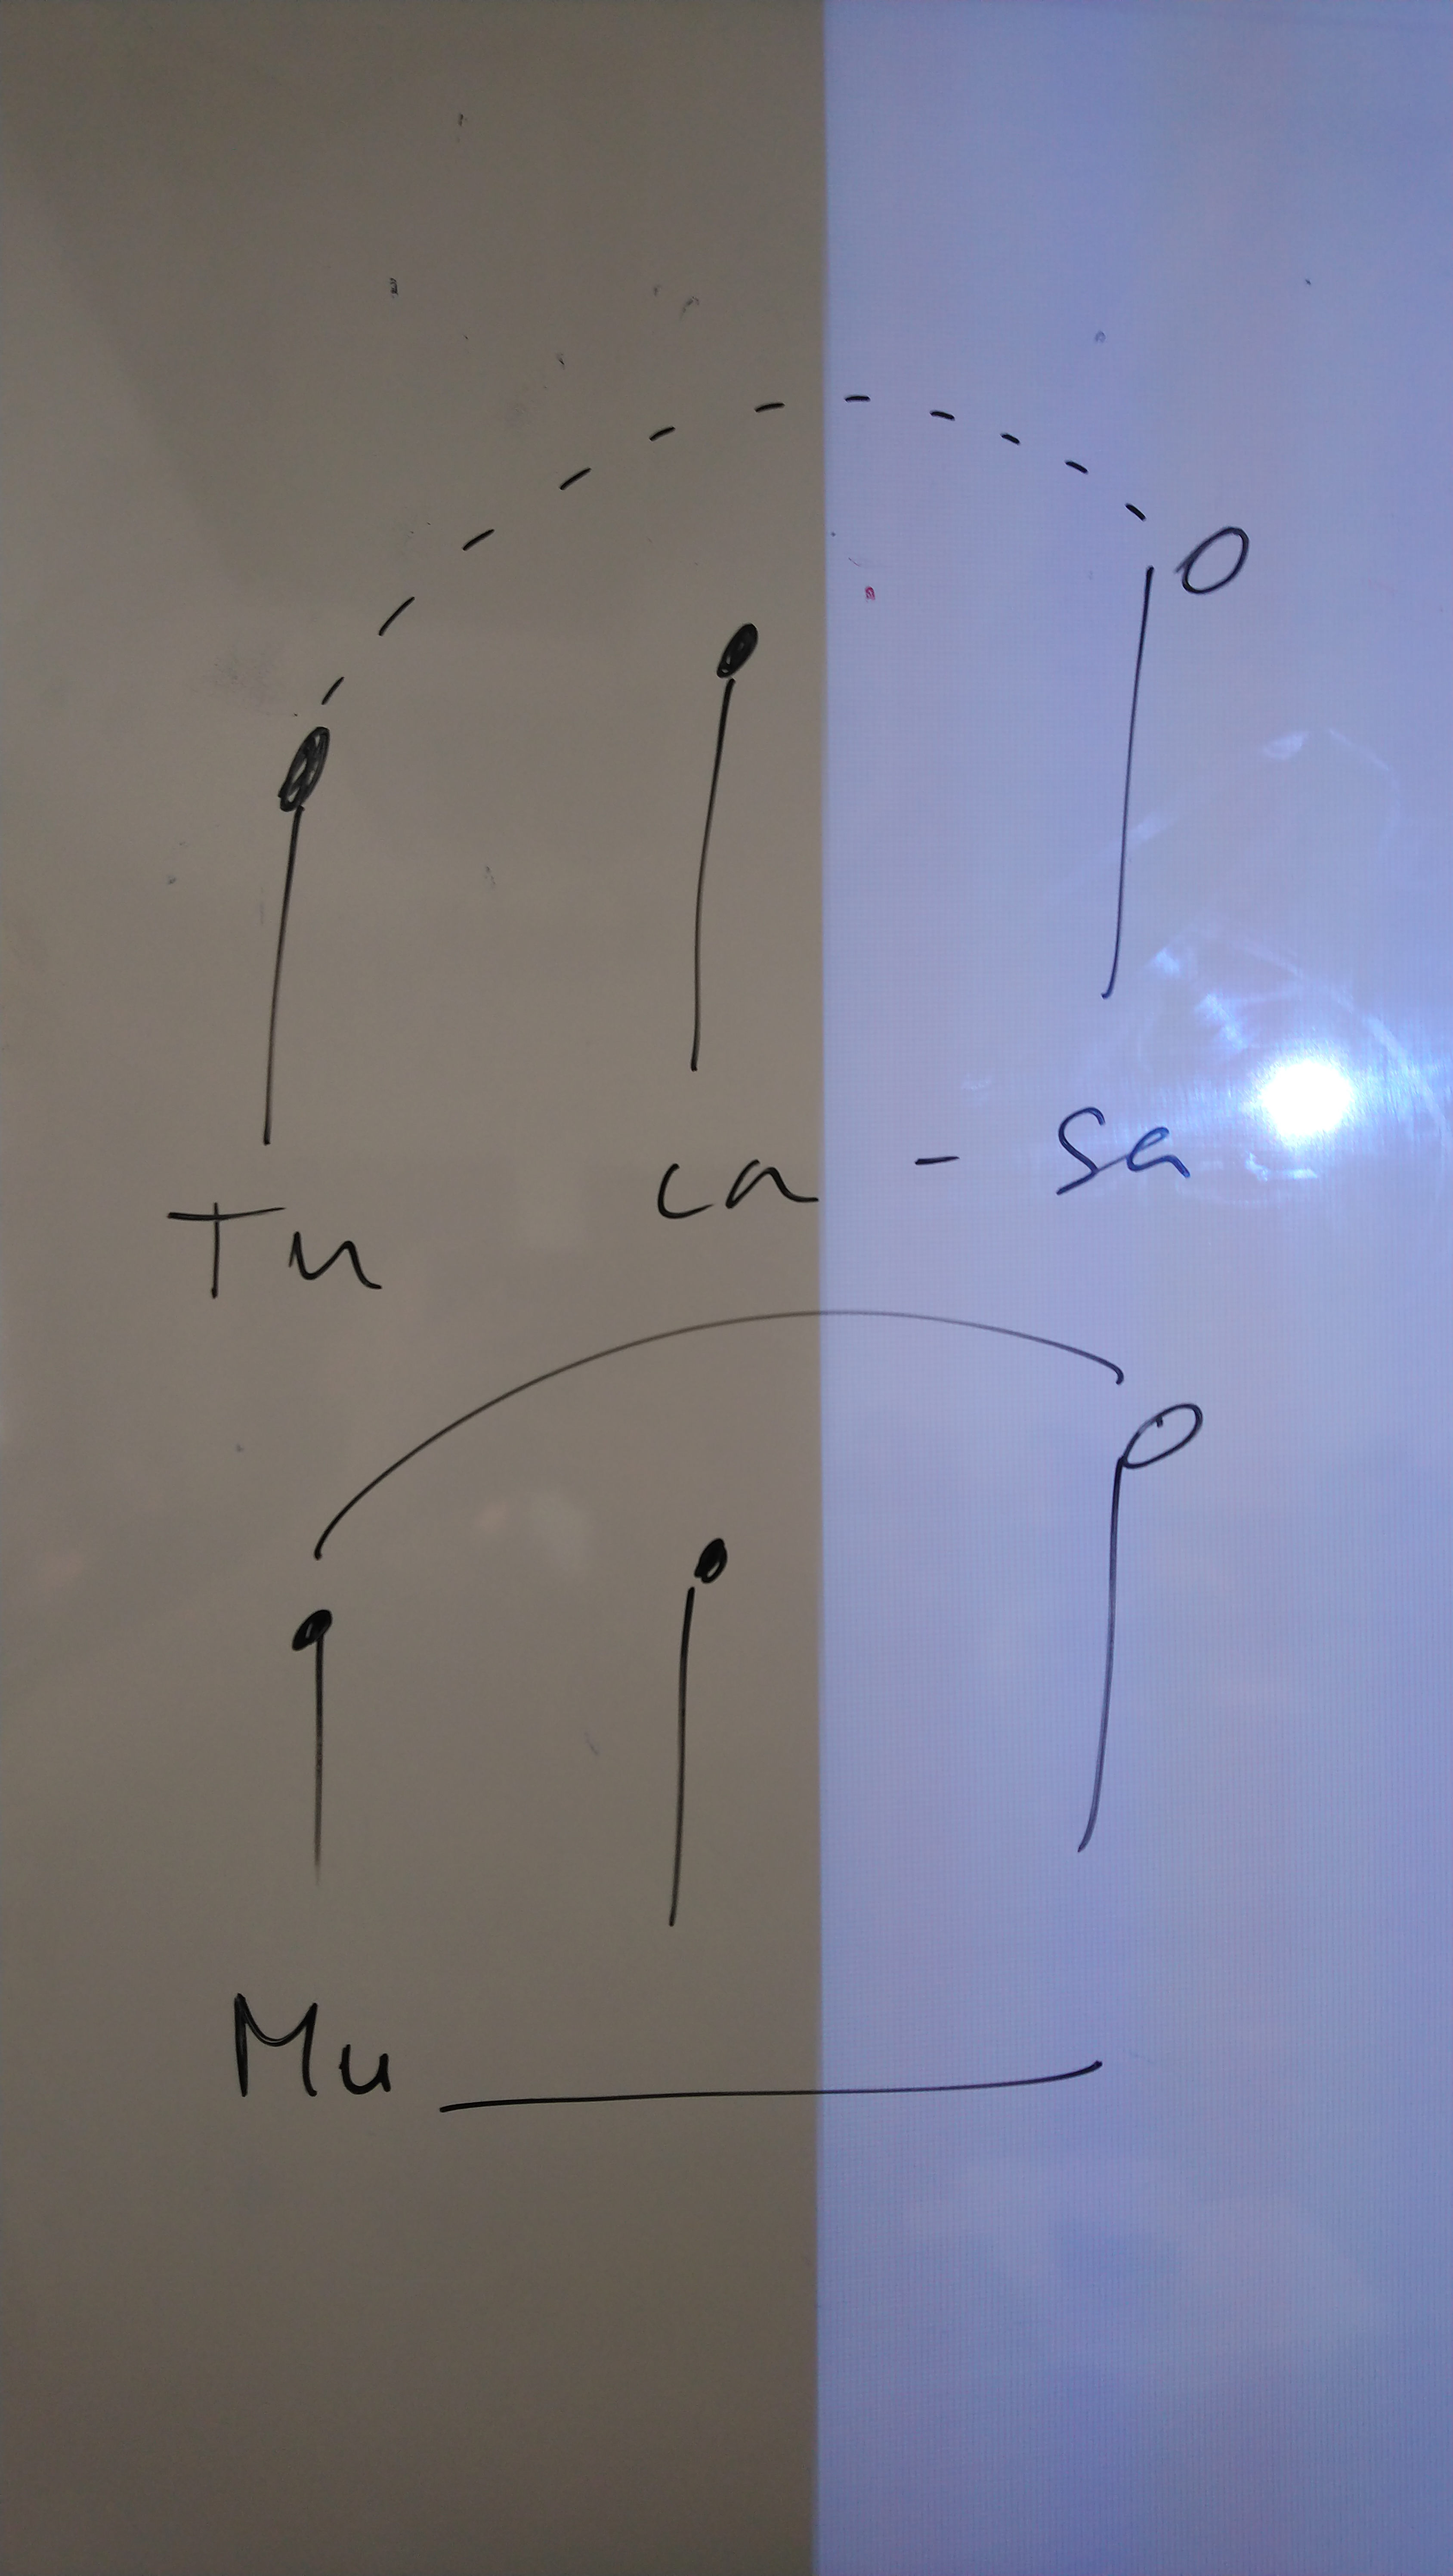 Tu ca - sa
Mu